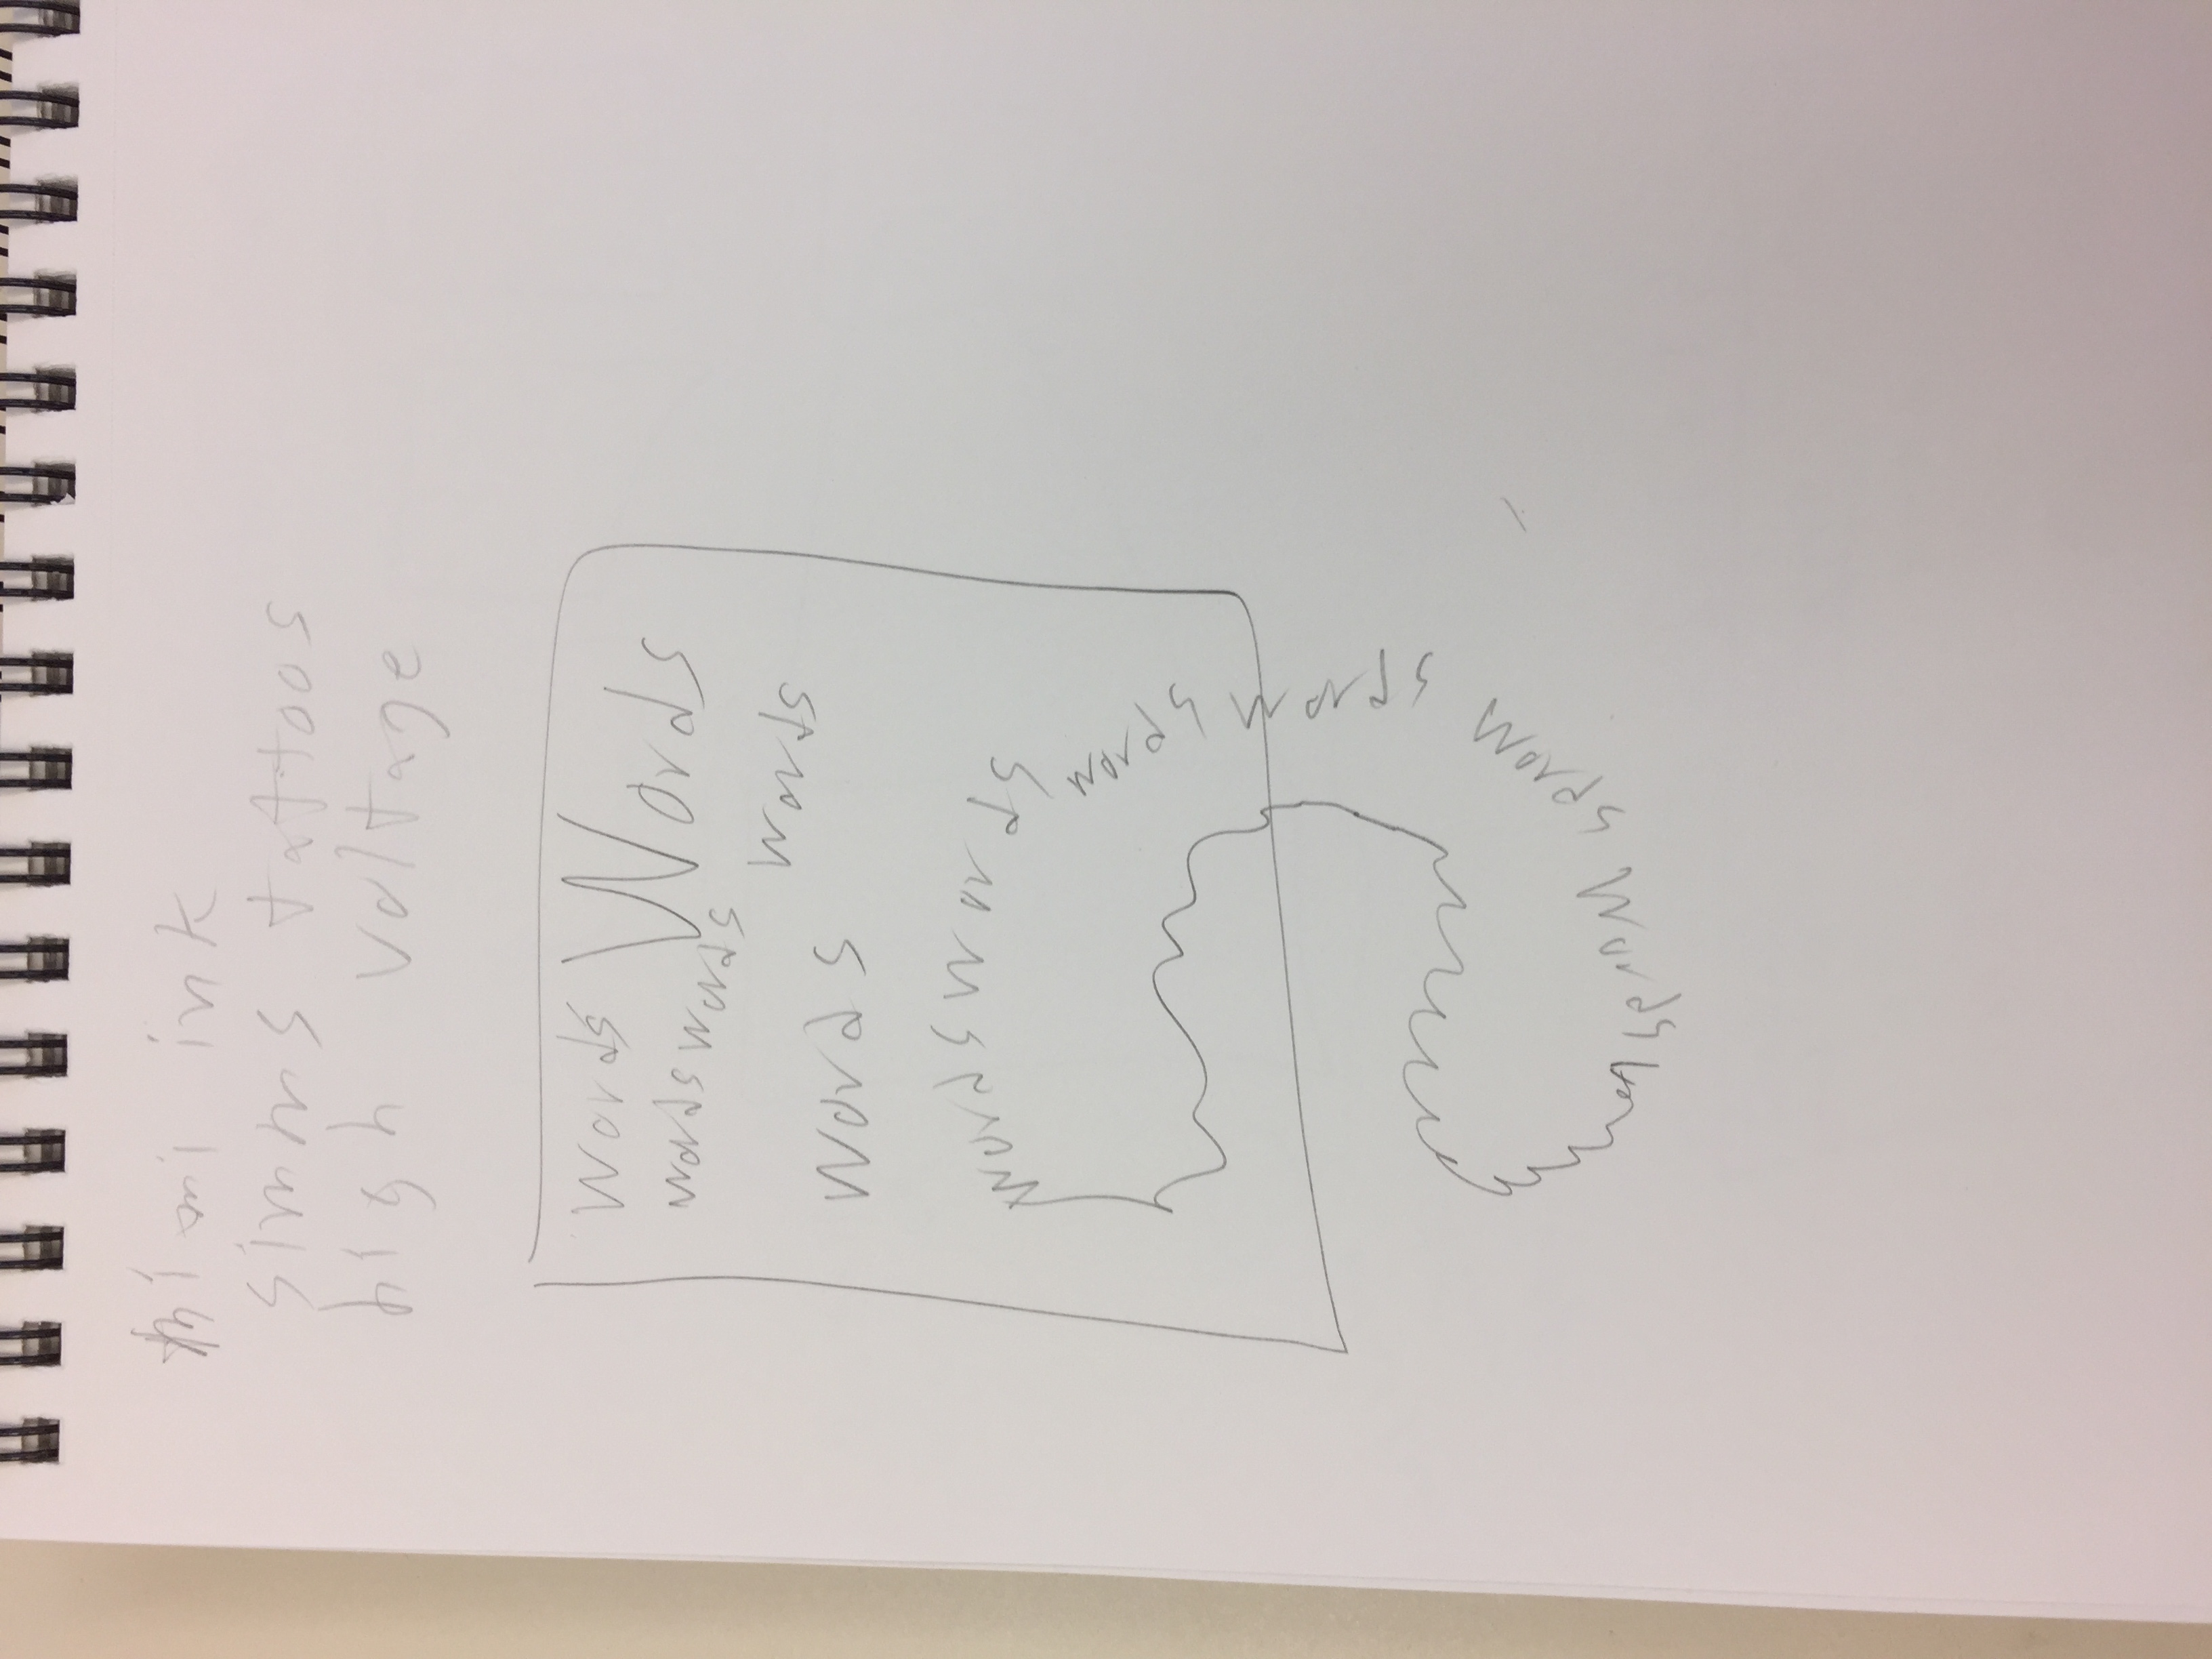 mimi ink
simms tattoos
high voltage
words Words
words words
words
words
words words
words
words
words
words